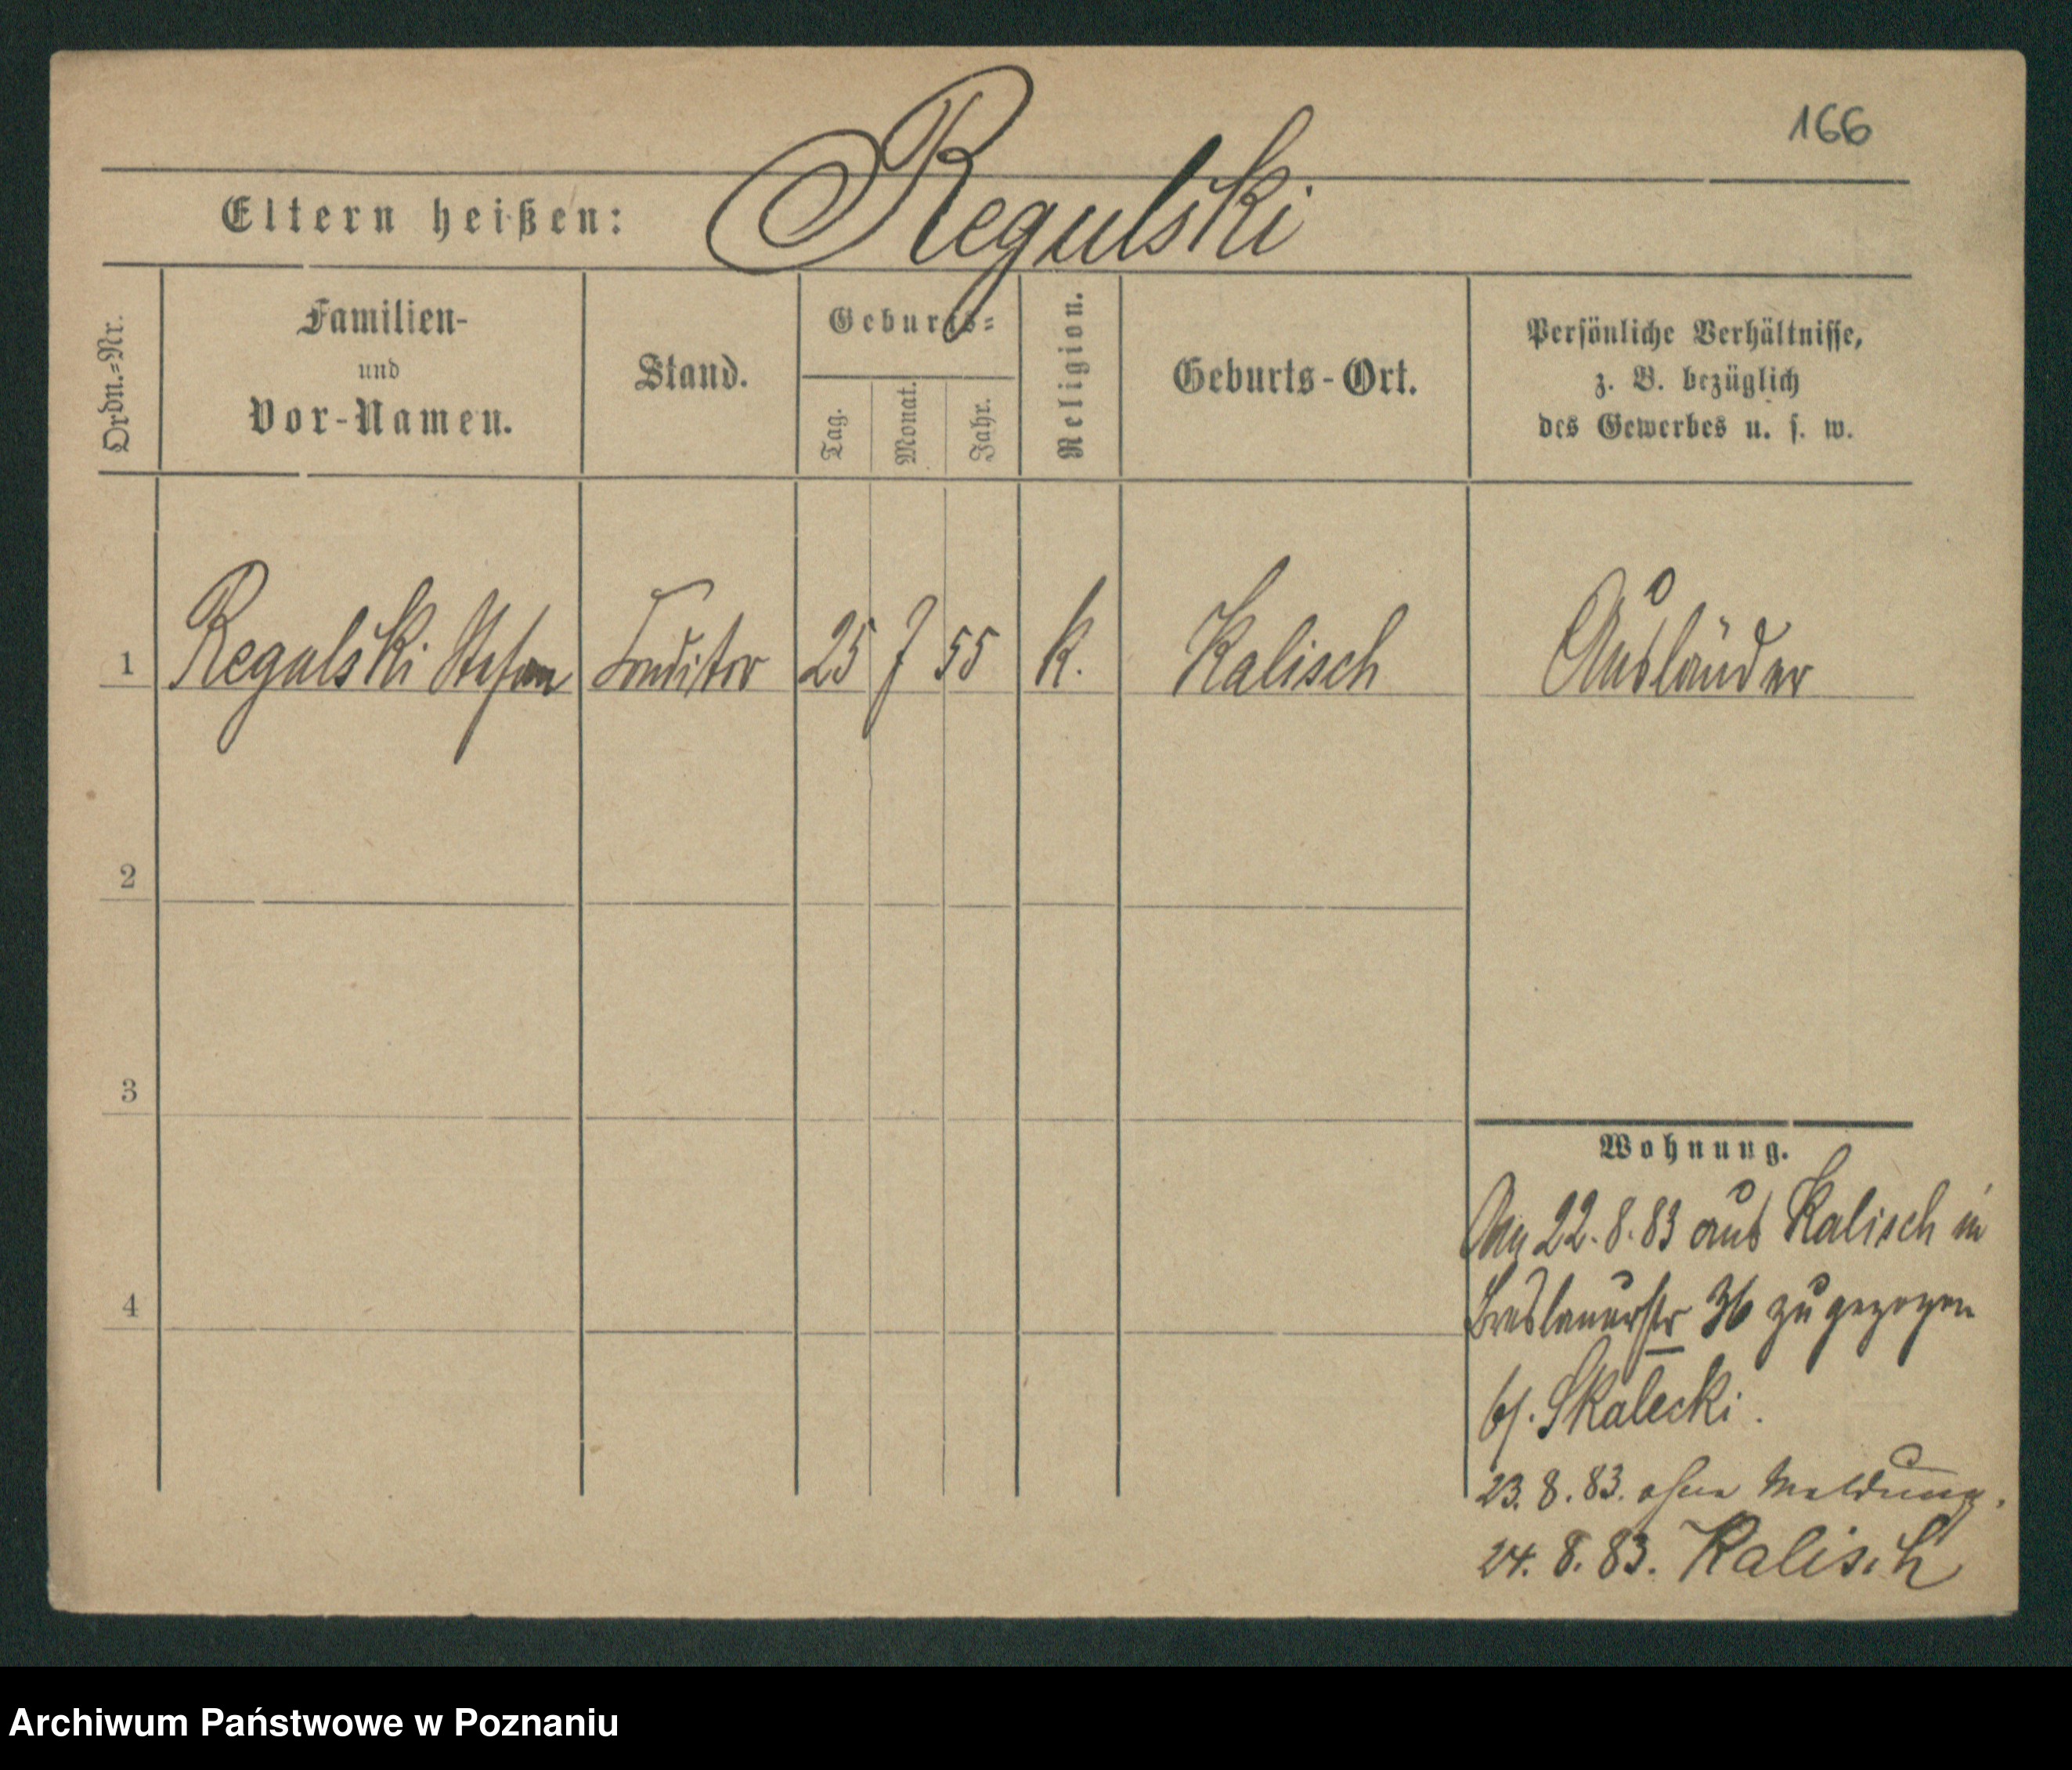 166
Eltern heißen: Regulski
Ordn.=Nr.
Familien-
und
Vor-Namen.
Stand.
Geburts=
Tag.
Monat.
Jahr.
Religion.
Geburts-Ort.
Persönliche Verhältnisse,
z. B. bezüglich
des Gewerbes u. s. w.
1 Regulski Stefan Conditor 25 7 55 k. Kalisch Ausländer
2
3
4
Wohnung.
Am 22.8.83 aus Kalisch in
Breslauerstr 36 zugezogen
bei Skalecki.
23.8.83. ohne Meldung.
24.8.83. Kalisch
Archiwum Państwowe w Poznaniu